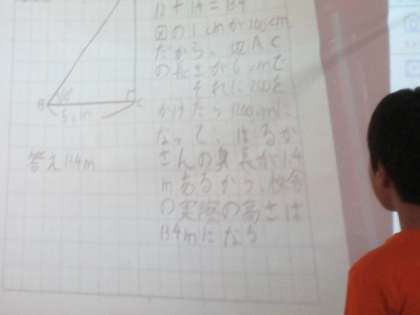 B
C
答え13.4m
12+1.4=13.4
図の1cmが200cm
だから、辺AC
の長さが6cmで
それに200を
かけたら1200cmに
なって、はるか
さんの身長が1.4
mあるから、校舎
の実際の高さは
13.4mになる